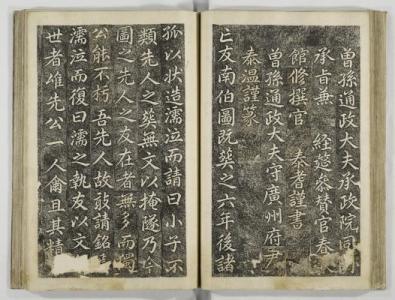 曾孫通政大夫承政院同
承旨兼 經筵參贊官春
館修撰官 泰耆謹書
曾孫通政大夫守廣州府尹
泰溫謹篆
亡友南伯圖旣葬之六年後諸
孤以狀造濡泣而請曰小子不
類先人之葬無文以掩隧乃今
圖之先人之友在者無多而獨
公能不朽吾先人故敢請銘
濡泣而復曰濡之執友以文
世者唯先公一人爾且其精